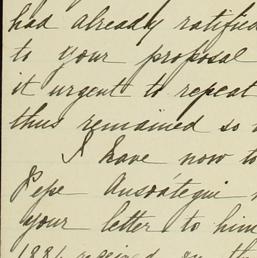 had already ratified
to your proposal
it urgent to repeat
thus remained so
I have now to
Pepe Ansoátegui
your letter to him
1884 received on the